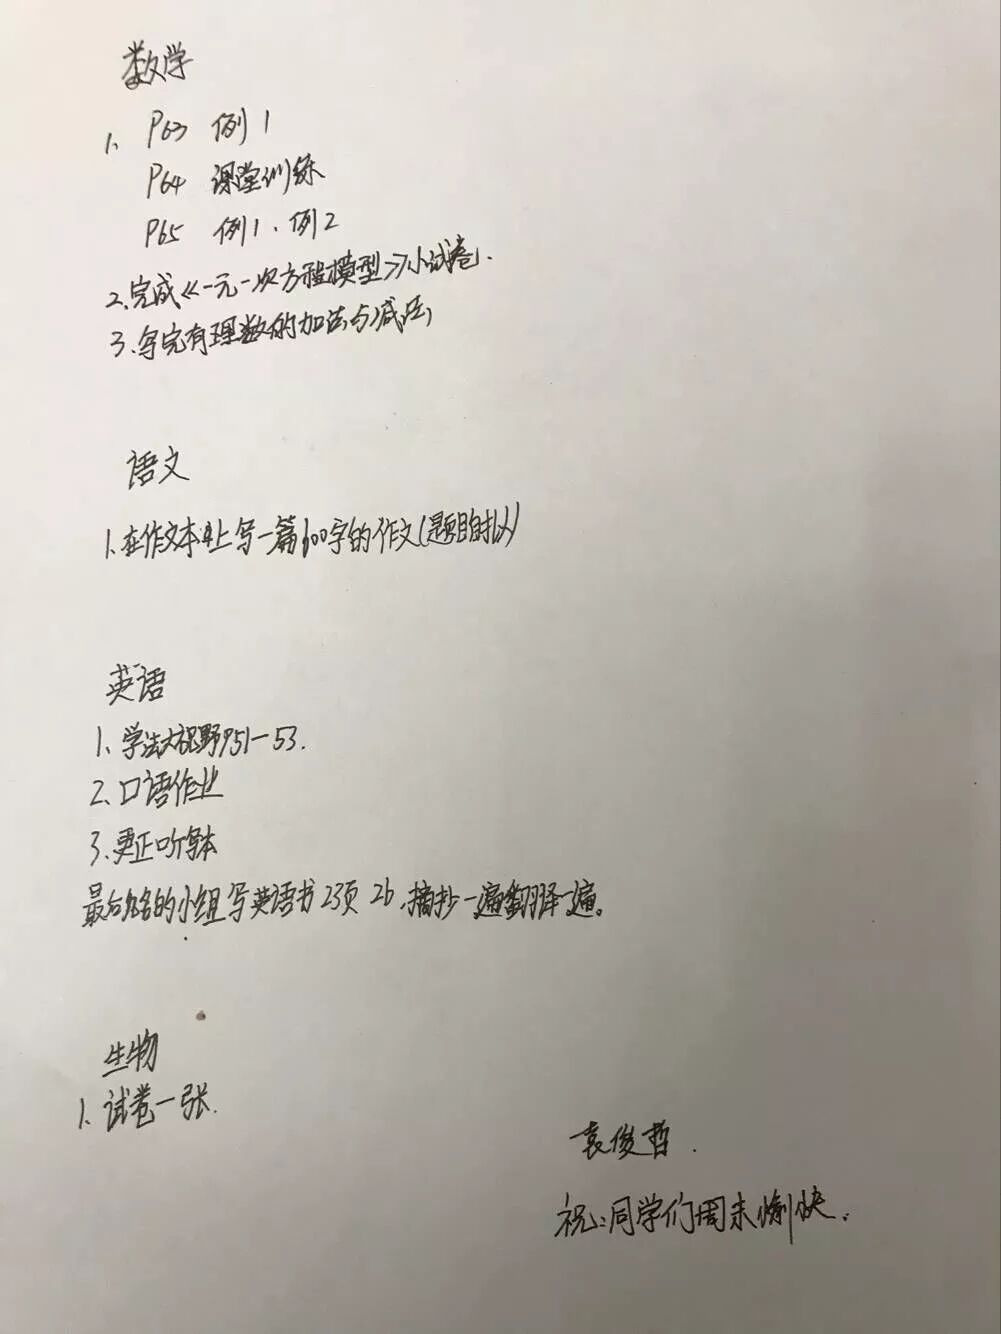 数学
1、P63 例1
P64 课堂训练
P65 例1、例2
2、完成《一元一次方程模型》小试卷.
3、写完有理数的加法与减法
语文
1、在作文本上写一篇600字的作文(题目自拟)
英语
1、学法大视野P51-53.
2、口语作业
3、更正听写本
最后的小组写英语书23页2b,摘抄一遍翻译一遍。
生物
1、试卷一张.
袁俊哲.
祝:同学们周末愉快.